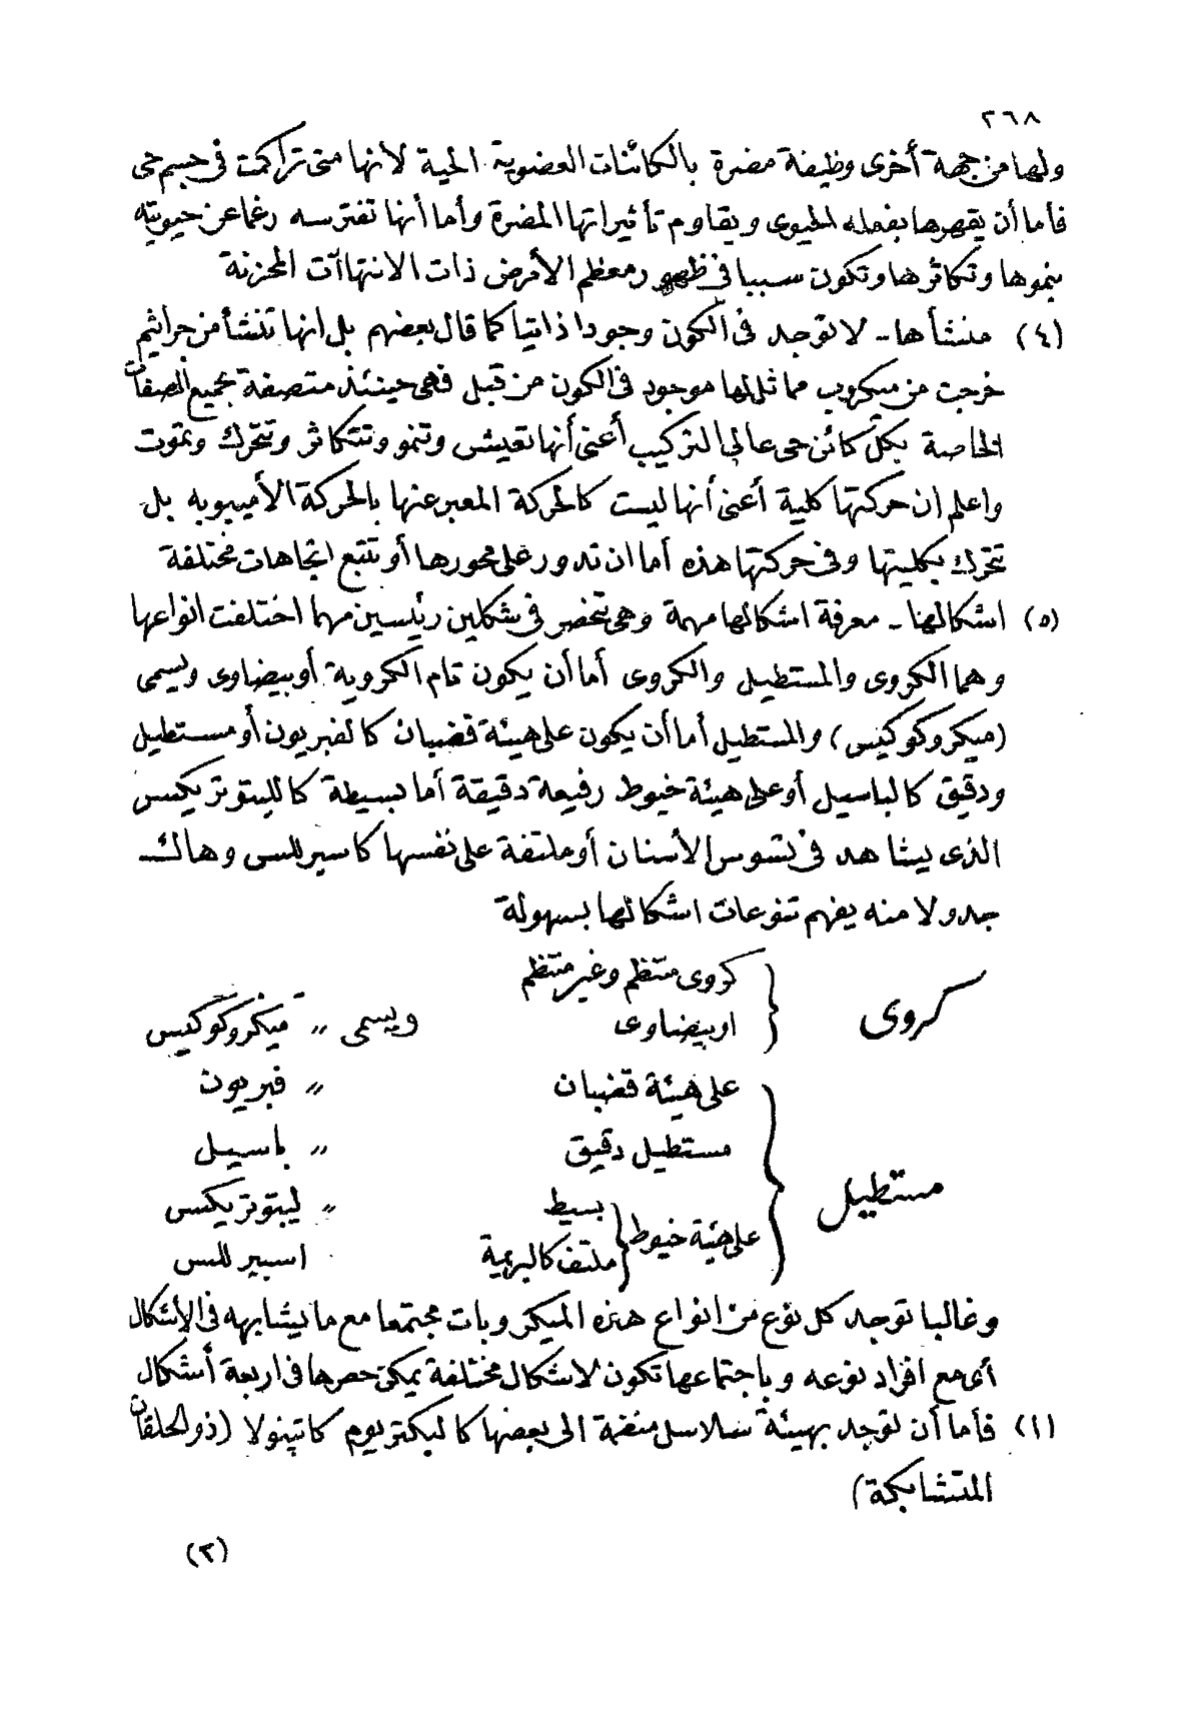 ٢٦٨
ولها من جهة أخرى وظيفة مضرة بالكائنات العضوية الحية لانها متى تراكمت فى جسم حى
فأما أن يقهرها بفعله الحيوى ويقاوم تأثيراتها المضرة وأما أنها تفترسه رغما عن حيويته
بنموها وتكاثرها وتكون سببا فى ظهور معظم الأمرض ذات الانتهاآت المحزنة
(٤) منشأها ـ لا توجد فى الكون وجودا ذاتيا كما قال بعضهم بل انها تنشأ من جراثيم
خرجت من ميكروب مماثل لها موجود فى الكون من قبل فهى حينئذ متصفة بجميع الصفات
الخاصة بكل كائن حى عالى التركيب أعنى أنها تعيش وتنمو وتتكاثر وتتحرك وتموت
واعلم ان حركتها كلية أعنى أنها ليست كالحركة المعبر عنها بالحركة الأميبويه بل
تتحرك بكليتها وفى حركتها هذه أما ان تدور على محورها أو تتبع اتجاهات مختلفة
(٥) اشكالها ـ معرفة اشكالها مهمة وهى تنحصر فى شكلين رئيسين مهما اختلفت انواعها
وهما الكروى والمستطيل والكروى أما أن يكون تام الكروية أو بيضاوى ويسمى
(ميكروكوكيس) والمستطيل أما أن يكون على هيئة قضبان كالفبريون أو مستطيل
ودقيق كالباسيل أو على هيئة خيوط رفيعة دقيقة أما بسيطة كالليبتوتريكس
الذى يشاهد فى تسوس الأسنان أو ملتفة على نفسها كاسبيرللس وهاك
جدولا منه يفهم تنوعات اشكالها بسهولة
كروى { كروى منتظم وغير منتظم
او بيضاوى ويسمى " ميكروكوكيس
مستطيل { على هيئة قضبان " فبريون
مستطيل دقيق " باسيل
على هيئة خيوط { بسيط " ليبتوتريكس
ملتف كالبريمية اسبيرللس
وغالبا توجد كل نوع من انواع هذه الميكروبات مجتمعا مع ما يشابهه فى الأشكال
أى مع افراد نوعه وباجتماعها تكون لاشكال مختلفة يمكن حصرها فى اربعة أشكال
(١) فأما أن توجد بهيئة سلاسل منضمة الى بعضها كالبكتريوم كاتينولا (ذو الحلقات
المتشابكة)
(٢)